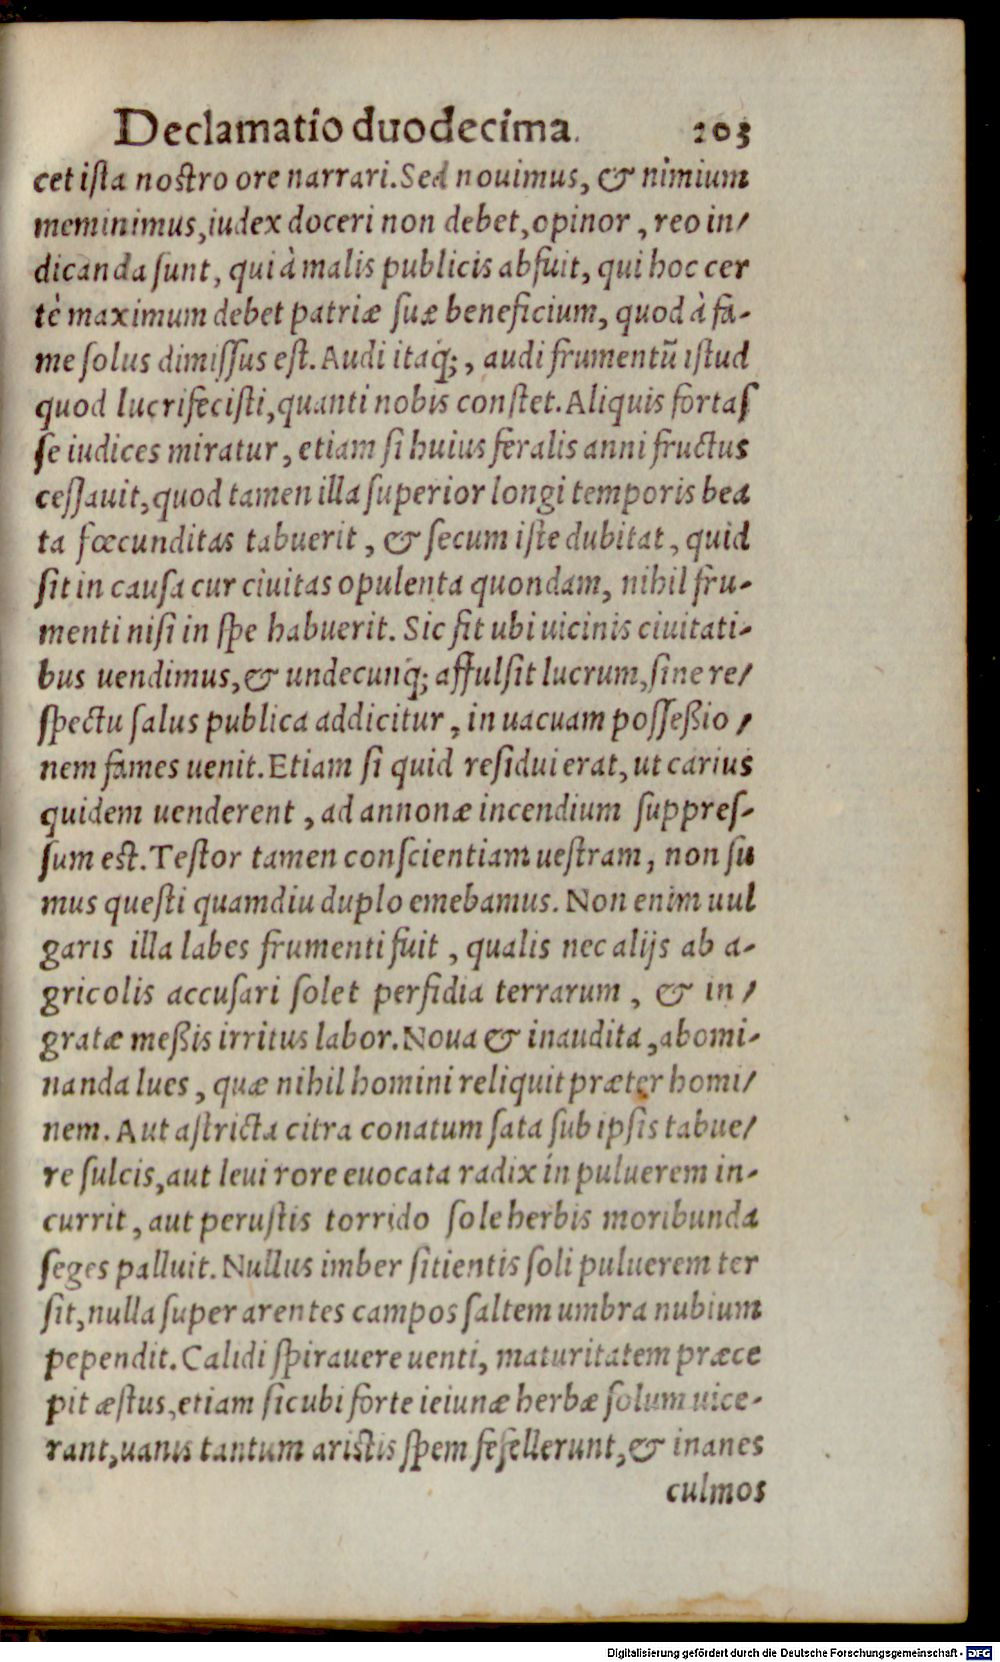 Declamatio duodecima. 203
cet ista nostro ore narrari. Sed nouimus, & nimium
meminimus, iudex doceri non debet, opinor, reo in/
dicanda sunt, qui à malis publicis abfuit, qui hoc cer
tè maximum debet patriæ suæ beneficium, quod à fa-
me solus dimissus est. Audi itaq;, audi frumentũ istud
quod lucrifecisti, quanti nobis constet. Aliquis fortas
se iudices miratur, etiam si huius feralis anni fructus
cessauit, quod tamen illa superior longi temporis bea
ta fœcunditas tabuerit, & secum iste dubitat, quid
sit in causa cur ciuitas opulenta quondam, nihil fru-
menti nisi in spe habuerit. Sic fit ubi uicinis ciuitati-
bus uendimus, & undecunq; affulsit lucrum, sine re/
spectu salus publica addicitur, in uacuam posseßio/
nem fames uenit. Etiam si quid residui erat, ut carius
quidem uenderent, ad annonæ incendium suppres-
sum est. Testor tamen conscientiam uestram, non su
mus questi quamdiu duplo emebamus. Non enim uul
garis illa labes frumenti fuit, qualis nec alijs ab a-
gricolis accusari solet perfidia terrarum, & in/
gratæ meßis irritus labor. Noua & inaudita, abomi-
nanda lues, quæ nihil homini reliquit præter homi/
nem. Aut astricta citra conatum sata sub ipsis tabue/
re sulcis, aut leui rore euocata radix in puluerem in-
currit, aut perustis torrido sole herbis moribunda
seges palluit. Nullus imber sitientis soli puluerem ter
sit, nulla super arentes campos saltem umbra nubium
pependit. Calidi spirauere uenti, maturitatem præce
pit æstus, etiam sicubi forte ieiunæ herbæ solum uice-
rant, uanis tantum aristis spem fefellerunt, & inanes
culmos
Digitalisierung gefördert durch die Deutsche Forschungsgemeinschaft - DFG